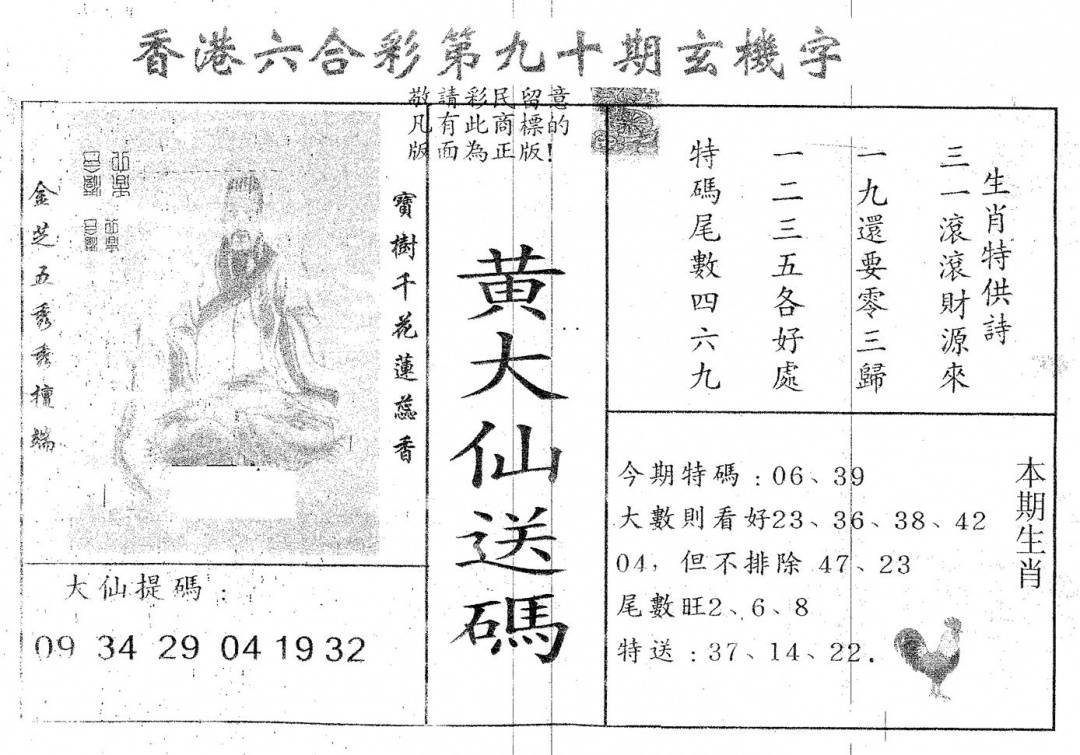 香港六合彩第九十期玄機字
敬請彩民留意
凡有此商標的
版面為正版!
生肖特供詩
三一滾滾財源來
一九還要零三歸
一二三五各好處
特碼尾數四六九
黃大仙送碼
寶樹千花蓮蕊香
金芝五秀秀檀端
大仙提碼:
09 34 29 04 19 32
本期生肖
今期特碼:06、39
大數則看好23、36、38、42
04,但不排除 47、23
尾數旺2、6、8
特送:37、14、22.